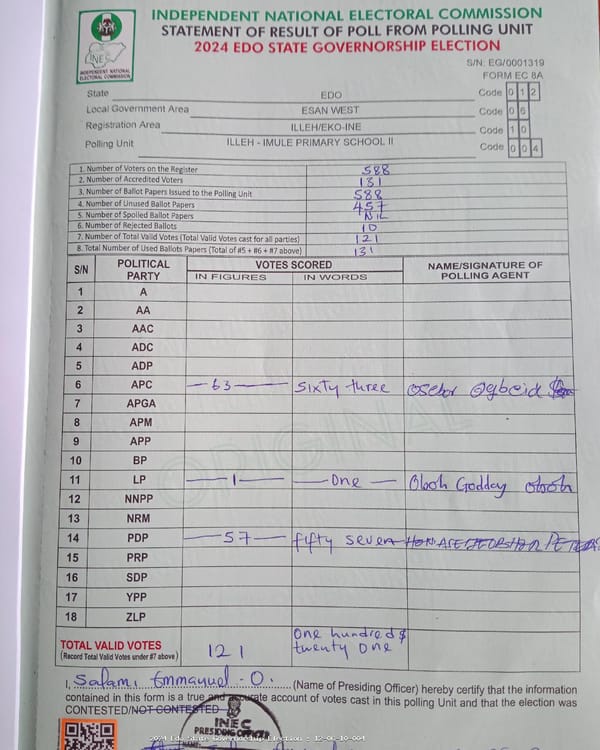 INDEPENDENT NATIONAL ELECTORAL COMMISSION
STATEMENT OF RESULT OF POLL FROM POLLING UNIT
2024 EDO STATE GOVERNORSHIP ELECTION
INEC
INDEPENDENT NATIONAL
ELECTORAL COMMISSION
S/N: EG/0001319
FORM EC 8A
State EDO Code 0 1 2
Local Government Area ESAN WEST Code 0 6
Registration Area ILLEH/EKO-INE Code 1 0
Polling Unit ILLEH - IMULE PRIMARY SCHOOL II Code 0 0 4
1. Number of Voters on the Register 588
2. Number of Accredited Voters 131
3. Number of Ballot Papers Issued to the Polling Unit 588
4. Number of Unused Ballot Papers 457
5. Number of Spoiled Ballot Papers NIL
6. Number of Rejected Ballots 10
7. Number of Total Valid Votes (Total Valid Votes cast for all parties) 121
8. Total Number of Used Ballots Papers (Total of #5 + #6 + #7 above) 131
S/N POLITICAL PARTY VOTES SCORED NAME/SIGNATURE OF POLLING AGENT
IN FIGURES IN WORDS
1 A
2 AA
3 AAC
4 ADC
5 ADP
6 APC 63 Sixty three Osebor Ogbeid
7 APGA
8 APM
9 APP
10 BP
11 LP 1 One Oboh Godday oboh
12 NNPP
13 NRM
14 PDP 57 fifty seven
15 PRP
16 SDP
17 YPP
18 ZLP
ORIGINAL
TOTAL VALID VOTES 121 One hundred & twenty one
(Record Total Valid Votes under #7 above)
I, Salami Emmanuel - O. (Name of Presiding Officer) hereby certify that the information
contained in this form is a true and accurate account of votes cast in this polling Unit and that the election was
CONTESTED/NOT CONTESTED
INEC
PRESIDING OFFICER
NAME:
2024 Edo State Governorship Election - 12-06-10-004